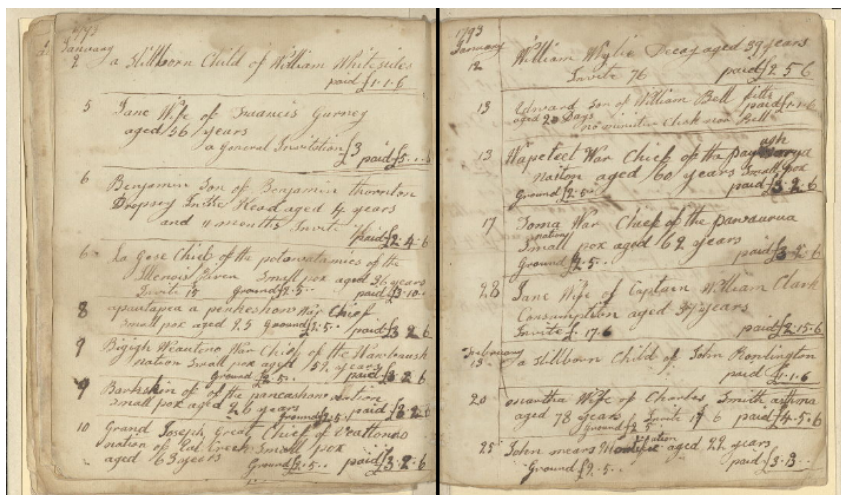 1793
January
2 a Stillborn Child of William Whitesides
paid £1.1.6
5 Jane Wife of Francis Gurney
aged 56 years
a general Invitation £3 paid £5.1.6
6 Benjamin Son of Benjamin thornton
Dropsey In the Head aged 4 years
and 11 months Invite paid £2.4.6
6 La Gose Chief of the potowatamies of the
Illenois River Small pox aged 36 years
Invite 15 Ground £2.5.. paid £3.10..
8 apautapea a penkeshow War Chief
Small pox aged 25 Ground £2.5.. paid £3.2.6
9 Bigigh Weautino War Chief of the Wawbaush
nation Small pox aged 57 years
Ground £2.5.. paid £3.2.6
9 Barkskin of of the pancashaw nation
Small pox aged 26 years paid £3.2.6
Ground £2.5..
10 Grand Joseph Great Chief of Veattonno
nation of Eel Creek Small pox
aged 63 years Ground £2.5.. paid £3.2.6
1793
January
12 William Wylie Decay aged 39 years
Invite 76 paid £2.5.6
13 Edward Son of William Bell fitts
aged 20 Days paid £1.1.6
no minition Bell
13 Wapeteet War Chief of the
nation aged 60 years Small pox
Ground £2.5.. paid £3.2.6
17 Toma War Chief of the pawaurua
nation
Small pox aged 62 years
Ground £2.5.. paid £3.2.6
28 Jane Wife of Captain William Clark
Consumption aged 37 years
Invite £.17.6 paid £2.15.6
February
13 a Stillborn Child of John Rowlington
paid £1.1.6
20 Wife of Charles Smith asthma
aged 78 years Invite 17 6 paid £4.5.6
Ground £2.5
25 John mears aged 22 years
Ground £2.5.. paid £3.3..